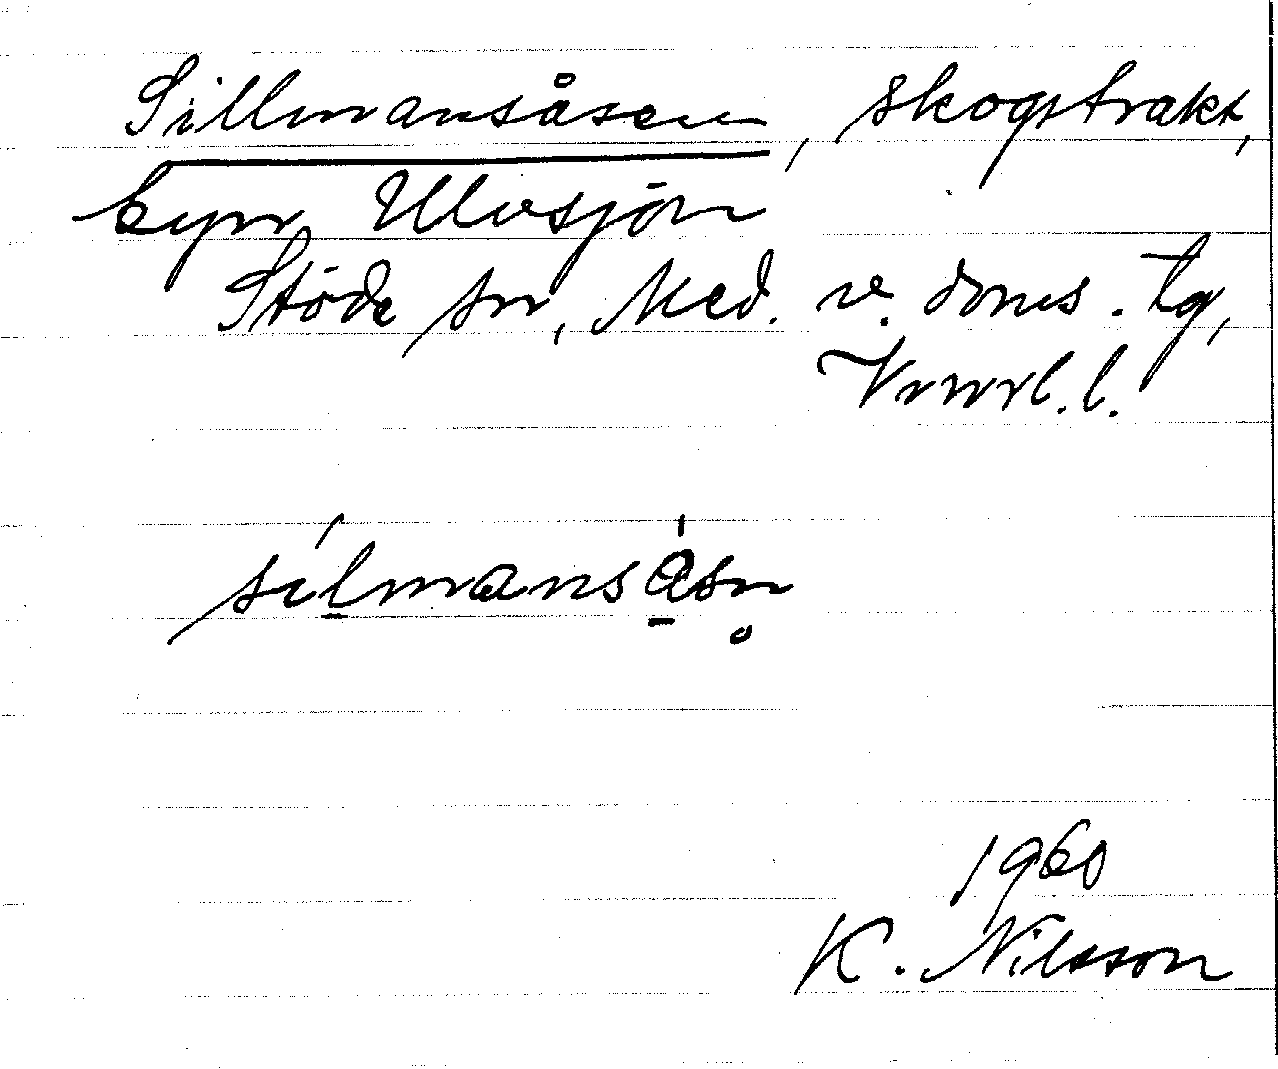 Sillmansåsen, skogstrakt,
byn Ulvsjön
Stöde sn, Med. v. doms. tg,
Vnrl. l.
sílmansåsn̥
1960
K. Nilsson